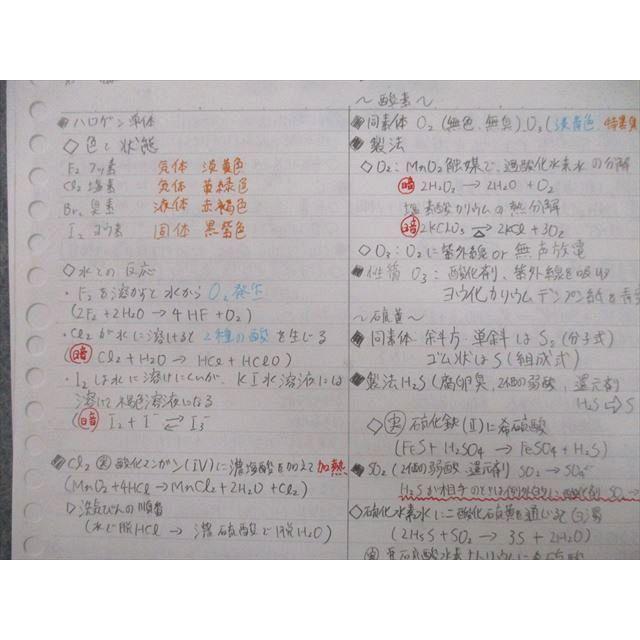 ◆ハロゲン単体
◇色と状態
F₂ フッ素 気体 淡黄色
Cl₂ 塩素 気体 黄緑色
Br₂ 臭素 液体 赤褐色
I₂ ヨウ素 固体 黒紫色
◇水との反応
・F₂を溶かすと水からO₂発生
(2F₂+2H₂O → 4HF+O₂)
・Cl₂が水に溶けると2種の酸を生じる
暗 Cl₂+H₂O → HCl+HClO)
・I₂は水に溶けにくいが、KI水溶液には
溶けて褐色溶液になる
暗 I₂+I⁻ ⇄ I₃⁻
◆Cl₂ 実 酸化マンガン(IV)に濃塩酸を加えて加熱
(MnO₂+4HCl → MnCl₂+2H₂O+Cl₂)
▷洗気びんの順番
(水で脱HCl → 濃硫酸で脱H₂O)
〜酸素〜
◆同素体 O₂(無色、無臭)、O₃(淡青色、特異臭
◆製法
◇O₂: MnO₂触媒で、過酸化水素水の分解
暗 2H₂O₂ → 2H₂O+O₂
塩素酸カリウムの熱分解
暗 2KClO₃ ⇄ 2KCl+3O₂
◇O₃: O₂に紫外線or無声放電
◆性質 O₃: 酸化剤、紫外線を吸収
ヨウ化カリウムデンプン紙を青
〜硫黄〜
◆同素体 斜方・単斜はS₈(分子式)
ゴム状はS(組成式)
◆製法H₂S(腐卵臭、2価の弱酸、還元剤
H₂S → S
◇実 硫化鉄(II)に希硫酸
(FeS+H₂SO₄ → FeSO₄+H₂S)
◆SO₂(2価の弱酸 還元剤 SO₂→SO₄²⁻
H₂Sが相手のときは例外的に酸化剤 SO₂→
◇硫化水素水に二酸化硫黄を通じると白濁
(2H₂S+SO₂ → 3S+2H₂O)